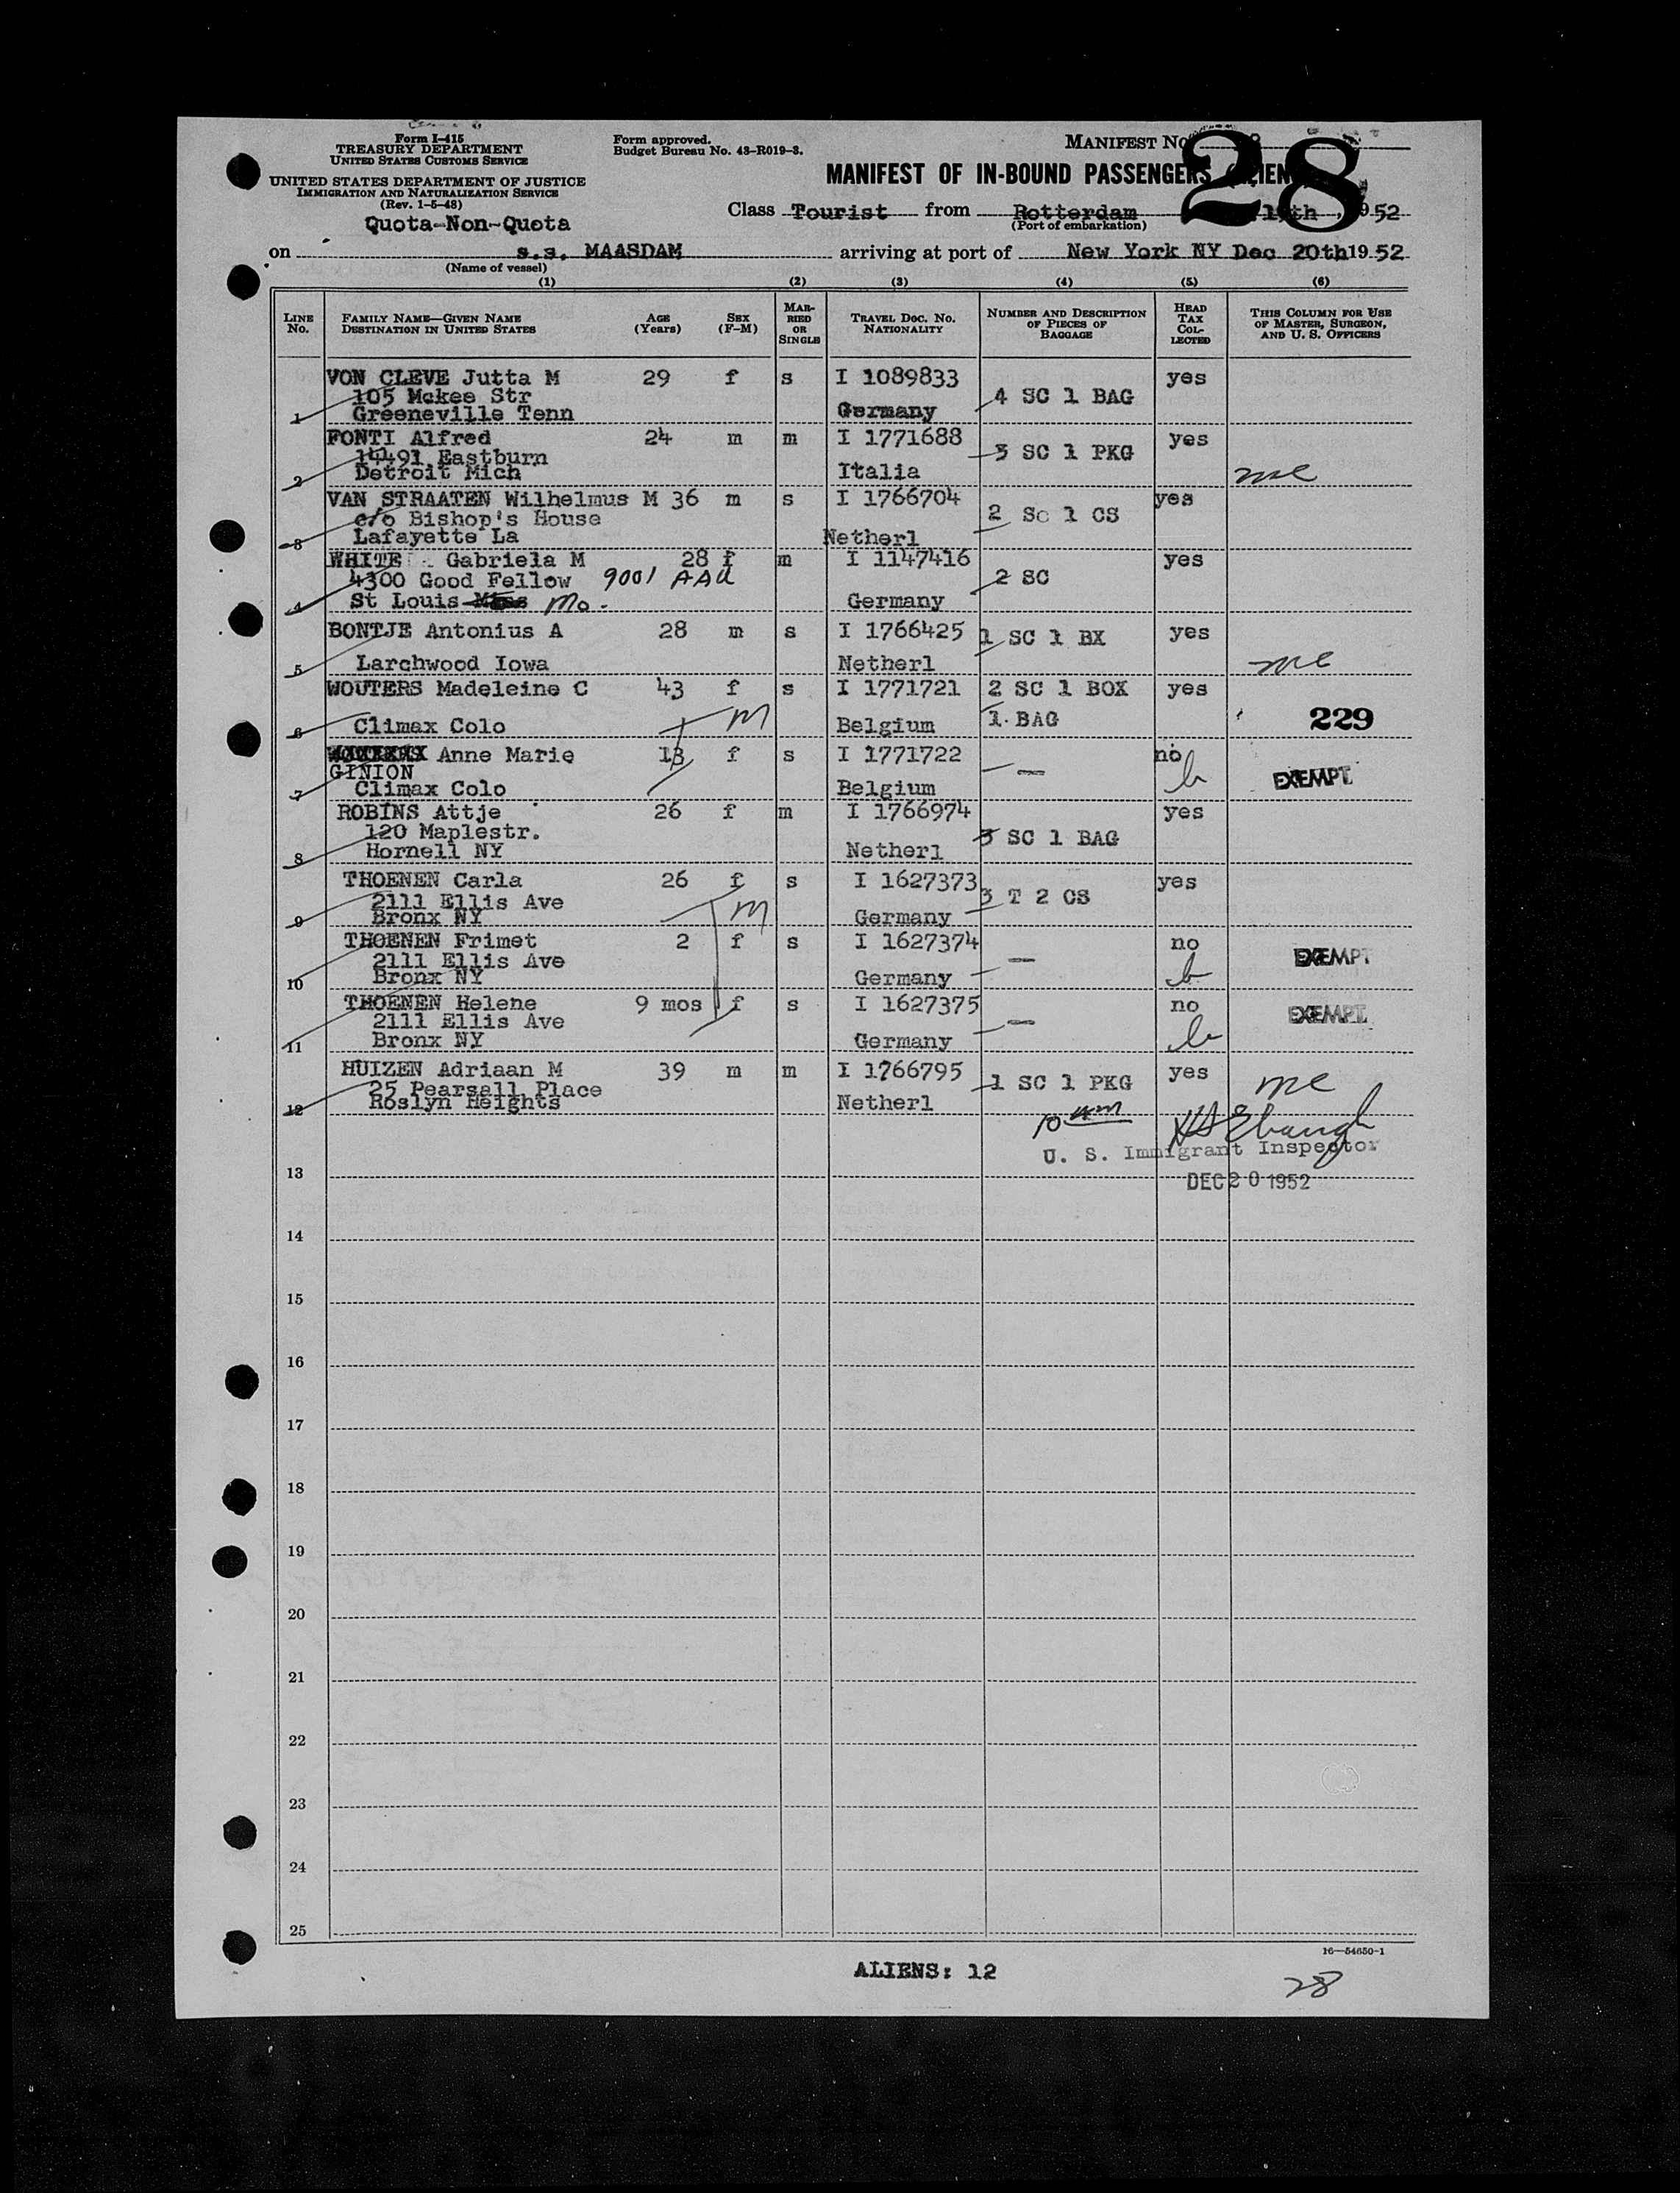 Form I-415
TREASURY DEPARTMENT
UNITED STATES CUSTOMS SERVICE
UNITED STATES DEPARTMENT OF JUSTICE
IMMIGRATION AND NATURALIZATION SERVICE
(Rev. 1-5-48)
Quota-Non-Quota
Form approved.
Budget Bureau No. 43-R019-3.
MANIFEST No
28
MANIFEST OF IN-BOUND PASSENGERS
Class Tourist from Rotterdam 52
(Port of embarkation)
on s.s. MAASDAM arriving at port of New York NY Dec 20th 1952
(Name of vessel)
(1) (2) (3) (4) (5) (6)
LINE No. FAMILY NAME—GIVEN NAME DESTINATION IN UNITED STATES AGE (Years) SEX (F-M) MARRIED OR SINGLE TRAVEL DOC. NO. NATIONALITY NUMBER AND DESCRIPTION OF PIECES OF BAGGAGE HEAD TAX COLLECTED THIS COLUMN FOR USE OF MASTER, SURGEON, AND U. S. OFFICERS
VON CLEVE Jutta M 29 f s I 1089833 yes
105 Mckee Str 4 SC 1 BAG
1 Greeneville Tenn Germany
FONTI Alfred 24 m m I 1771688 yes
14491 Eastburn 3 SC 1 PKG
2 Detroit Mich Italia me
VAN STRAATEN Wilhelmus M 36 m s I 1766704 yes
c/o Bishop's House 2 Sc 1 CS
3 Lafayette La Netherl
WHITE Gabriela M 28 f m I 1147416 yes
4300 Good Fellow 9001 AAU 2 SC
4 St Louis Mo. Germany
BONTJE Antonius A 28 m s I 1766425 1 SC 1 BX yes
5 Larchwood Iowa Netherl me
WOUTERS Madeleine C 43 f s I 1771721 2 SC 1 BOX yes
6 Climax Colo M Belgium 1 BAG 229
Anne Marie 13 f s I 1771722 — no
GINION EXEMPT
7 Climax Colo Belgium
ROBINS Attje 26 f m I 1766974 yes
120 Maplestr. 3 SC 1 BAG
8 Hornell NY Netherl
THOENEN Carla 26 f s I 1627373 yes
2111 Ellis Ave M 3 T 2 CS
9 Bronx NY Germany
THOENEN Frimet 2 f s I 1627374 no
2111 Ellis Ave — EXEMPT
10 Bronx NY Germany
THOENEN Helene 9 mos f s I 1627375 no
2111 Ellis Ave — EXEMPT
11 Bronx NY Germany
HUIZEN Adriaan M 39 m m I 1766795 yes
25 Pearsall Place 1 SC 1 PKG me
12 Roslyn Heights Netherl
10 am
U. S. Immigrant Inspector
13 DEC 20 1952
14
15
16
17
18
19
20
21
22
23
24
25
16—54650-1
ALIENS: 12
28